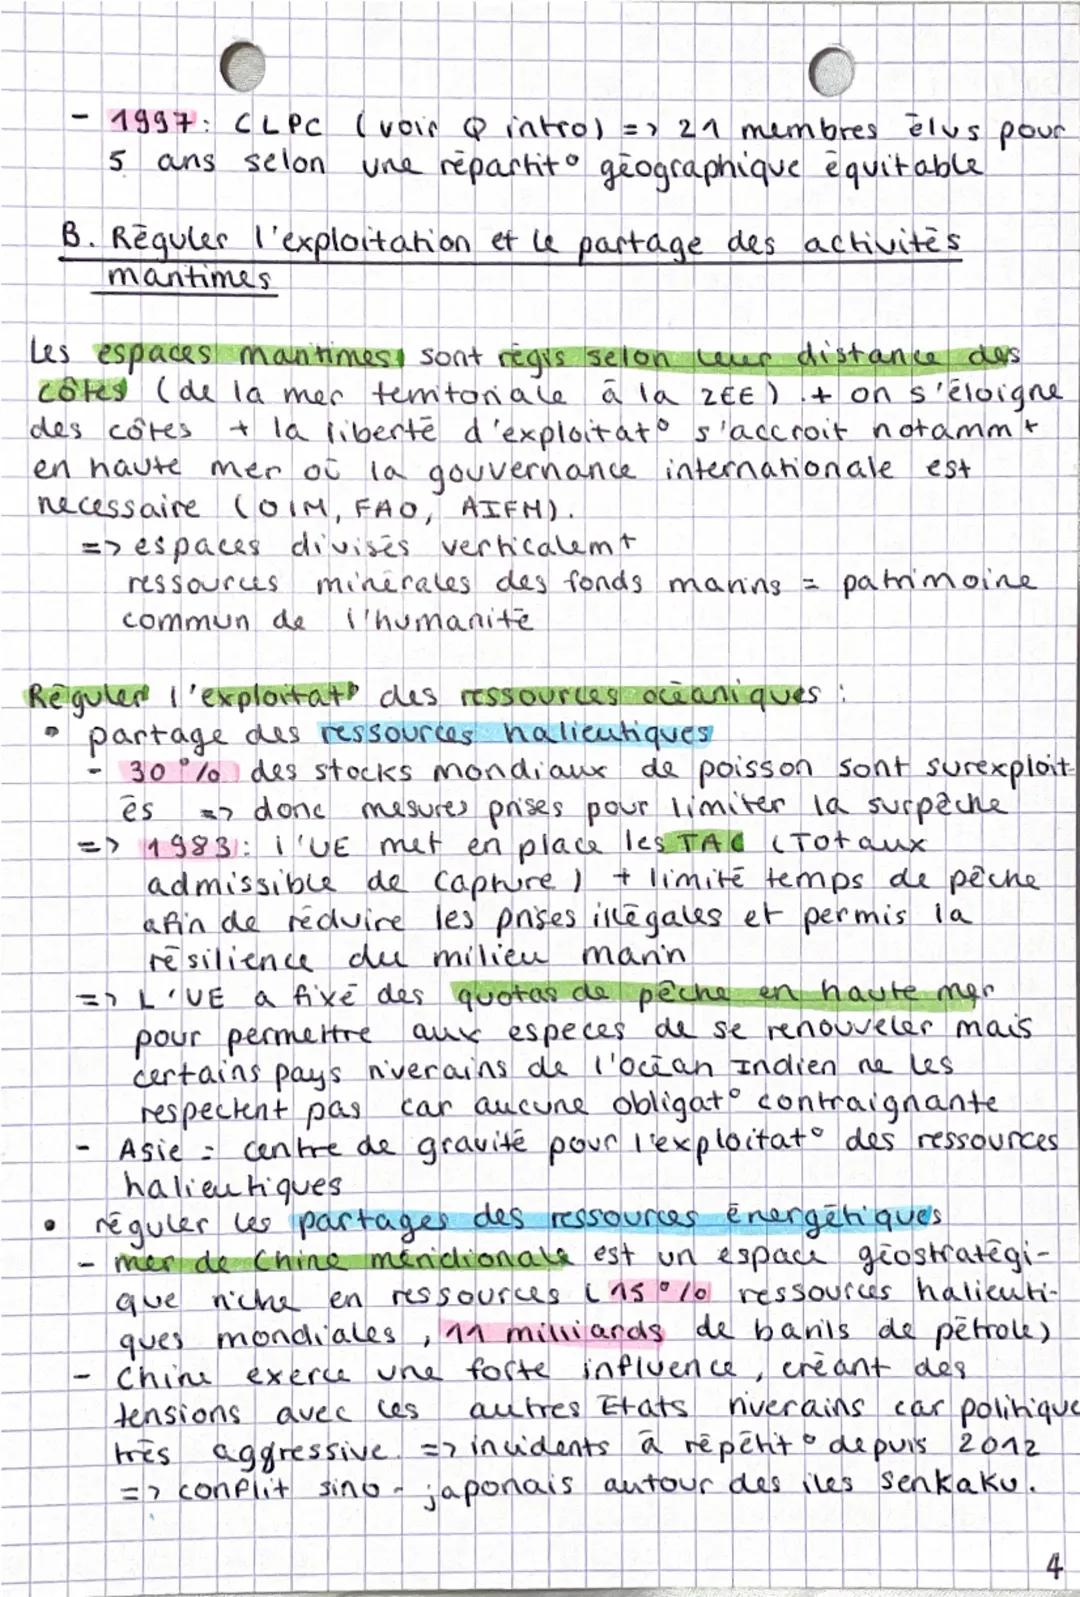 - 1997: CLPC (voir Q intro) => 21 membres élus pour
5 ans selon une répartit° géographique équitable
B. Réguler l'exploitation et le partage des activités
maritimes
Les espaces maritimes sont régis selon leur distance des
côtes (de la mer territoriale à la ZEE). + on s'éloigne
des côtes + la liberté d'exploitat° s'accroit notammt
en haute mer où la gouvernance internationale est
necessaire (OIM, FAO, AIFM).
=> espaces divisés verticalemt
ressources minérales des fonds marins = patrimoine
commun de l'humanité
Réguler l'exploitat° des ressources océaniques :
• partage des ressources halieutiques
- 30 % des stocks mondiaux de poisson sont surexploit-
és => donc mesures prises pour limiter la surpêche
=> 1983: l'UE met en place les TAC (Totaux
admissible de Capture) + limité temps de pêche
afin de réduire les prises illégales et permis la
résilience du milieu marin
=> L'UE a fixé des quotas de pêche en haute mer
pour permettre aux especes de se renouveler mais
certains pays riverains de l'océan Indien ne les
respectent pas car aucune obligat° contraignante
- Asie = centre de gravité pour l'exploitat° des ressources
halieutiques
• réguler les partages des ressources énergétiques
- mer de Chine méridionale est un espace géostratégi-
que riche en ressources (15 % ressources halieuti-
ques mondiales, 11 milliards de barils de pétrole)
- Chine exerce une forte influence, créant des
tensions avec les autres Etats riverains car politique
très aggressive. => incidents à répétit° depuis 2012
=> conflit sino-japonais autour des iles Senkaku.
4